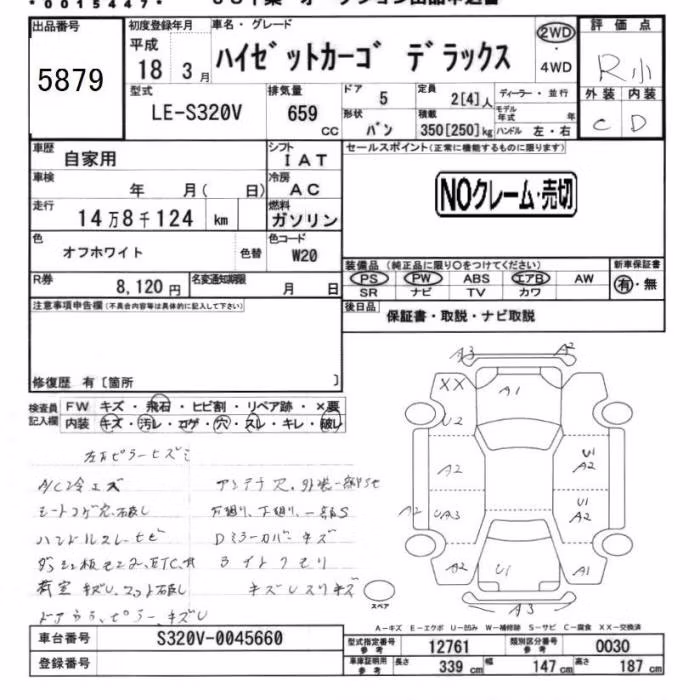 *0015447*
出品番号 5879
初度登録年月 平成 18 3月
車名・グレード ハイゼットカーゴ デラックス
2WD・4WD
評価点 R小
外装 C 内装 D
型式 LE-S320V
排気量 659 CC
ドア 5 定員 2[4]人 ディーラー・並行
形状 バン 積載 350[250]kg モデル年式 年 ハンドル 左・右
車歴 自家用
シフト IAT
セールスポイント(正常に機能するものに限ります)
車検 年 月( 日)
冷房 AC
NOクレーム・売切
走行 14万8千124 km
燃料 ガソリン
色 オフホワイト 色替
色コード W20
装備品(純正品に限り○をつけてください) 新車保証書
PS PW ABS エアB AW 有・無
SR ナビ TV カワ
R券 8,120円 名変通知期限 月 日
後日品 保証書・取説・ナビ取説
注意事項申告欄(不具合内容等は具体的に記入して下さい)
修復歴 有〔箇所 〕
検査員記入欄 FW キズ・飛石・ヒビ割・リペア跡・×要
内装 キズ・汚レ・コゲ・穴・スレ・キレ・破レ
A3 A2
XX A1
U2
A2 U1 A2
A2 UA3 U1 A2
A2 U1 A1
A3
A/C冷エズ アンテナ穴、外装一部S
シートコゲ穴、破レ 下廻リ、一部S
ハンドルスレ Dミラーカバーキズ
荷室キズU、マット破レ
スペア
A-キズ E-エクボ U-凹み W-補修跡 S-サビ C-腐食 XX-交換済
車台番号 S320V-0045660
登録番号
型式指定番号 参考 12761 類別区分番号 参考 0030
車庫証明用 参考 長さ 339 cm 幅 147 cm 高さ 187 cm